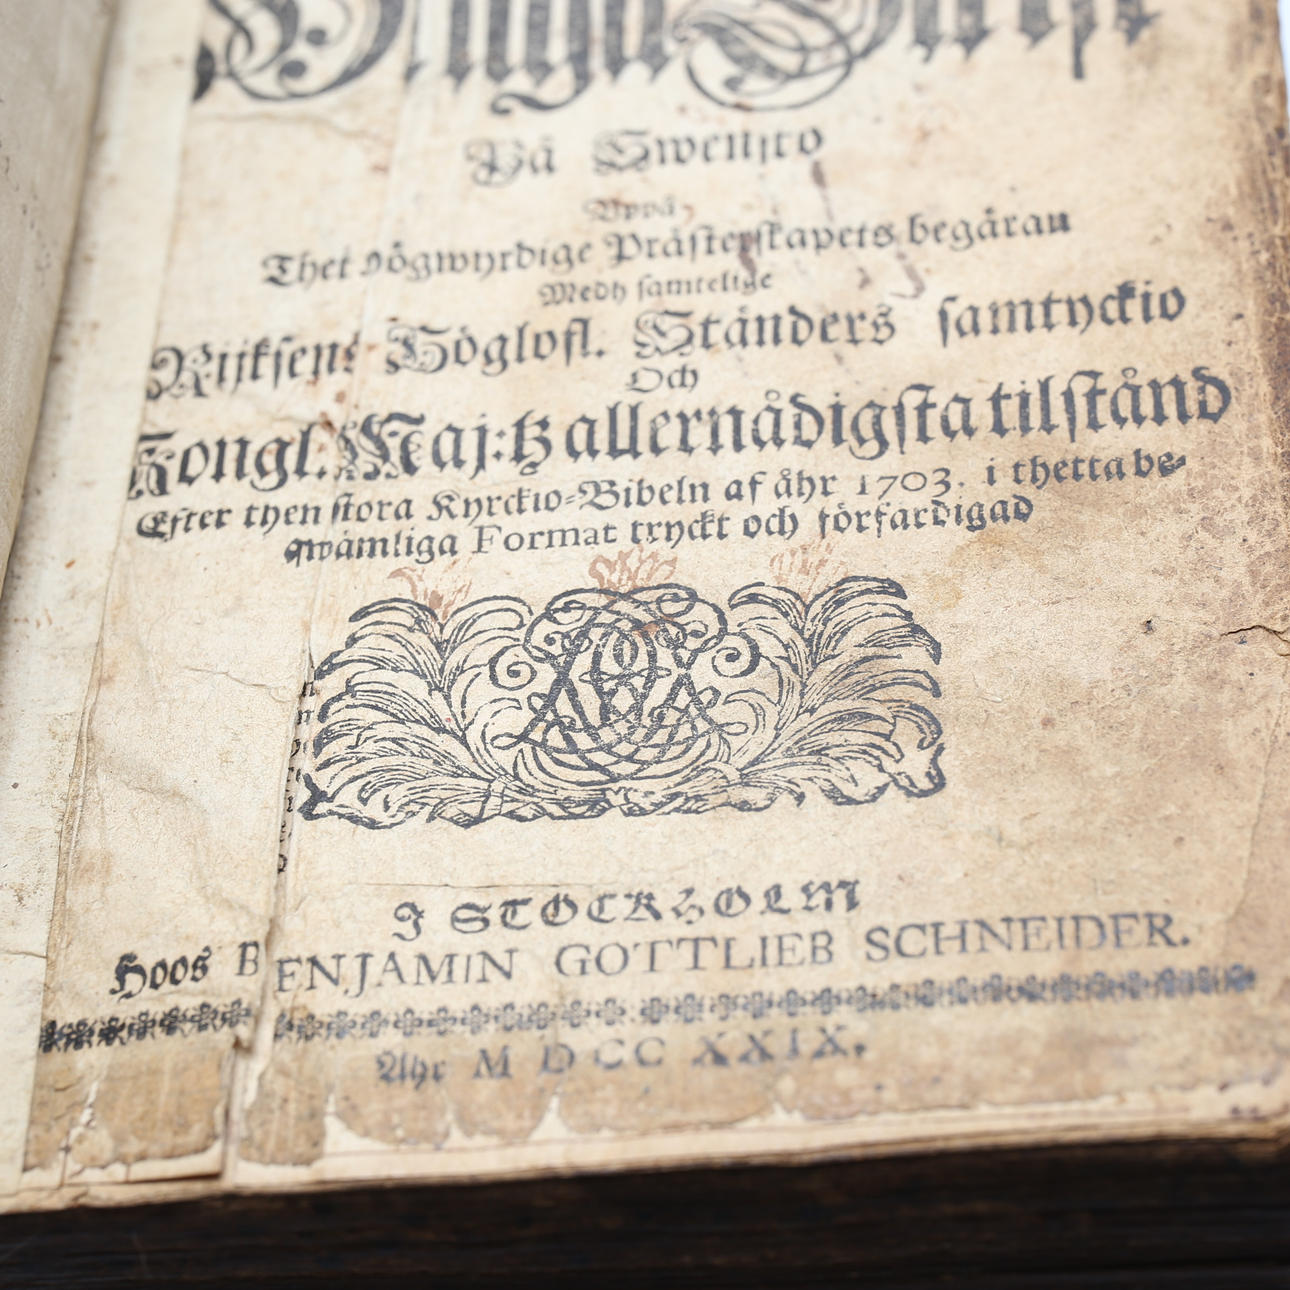 Helga Skrift
På Swensko
Uppå
Thet Högwyrdige Prästerskapets begäran
Medh samtelige
Rijksens Höglofl. Ständers samtyckio
Och
Kongl. Maj:tz allernådigsta tilstånd
Efter then stora Kyrckio-Bibeln af åhr 1703. i thetta be-
qwämliga Format tryckt och förfärdigad
J STOCKHOLM
Hoos BENJAMIN GOTTLIEB SCHNEIDER.
Åhr M DCC XXIX.